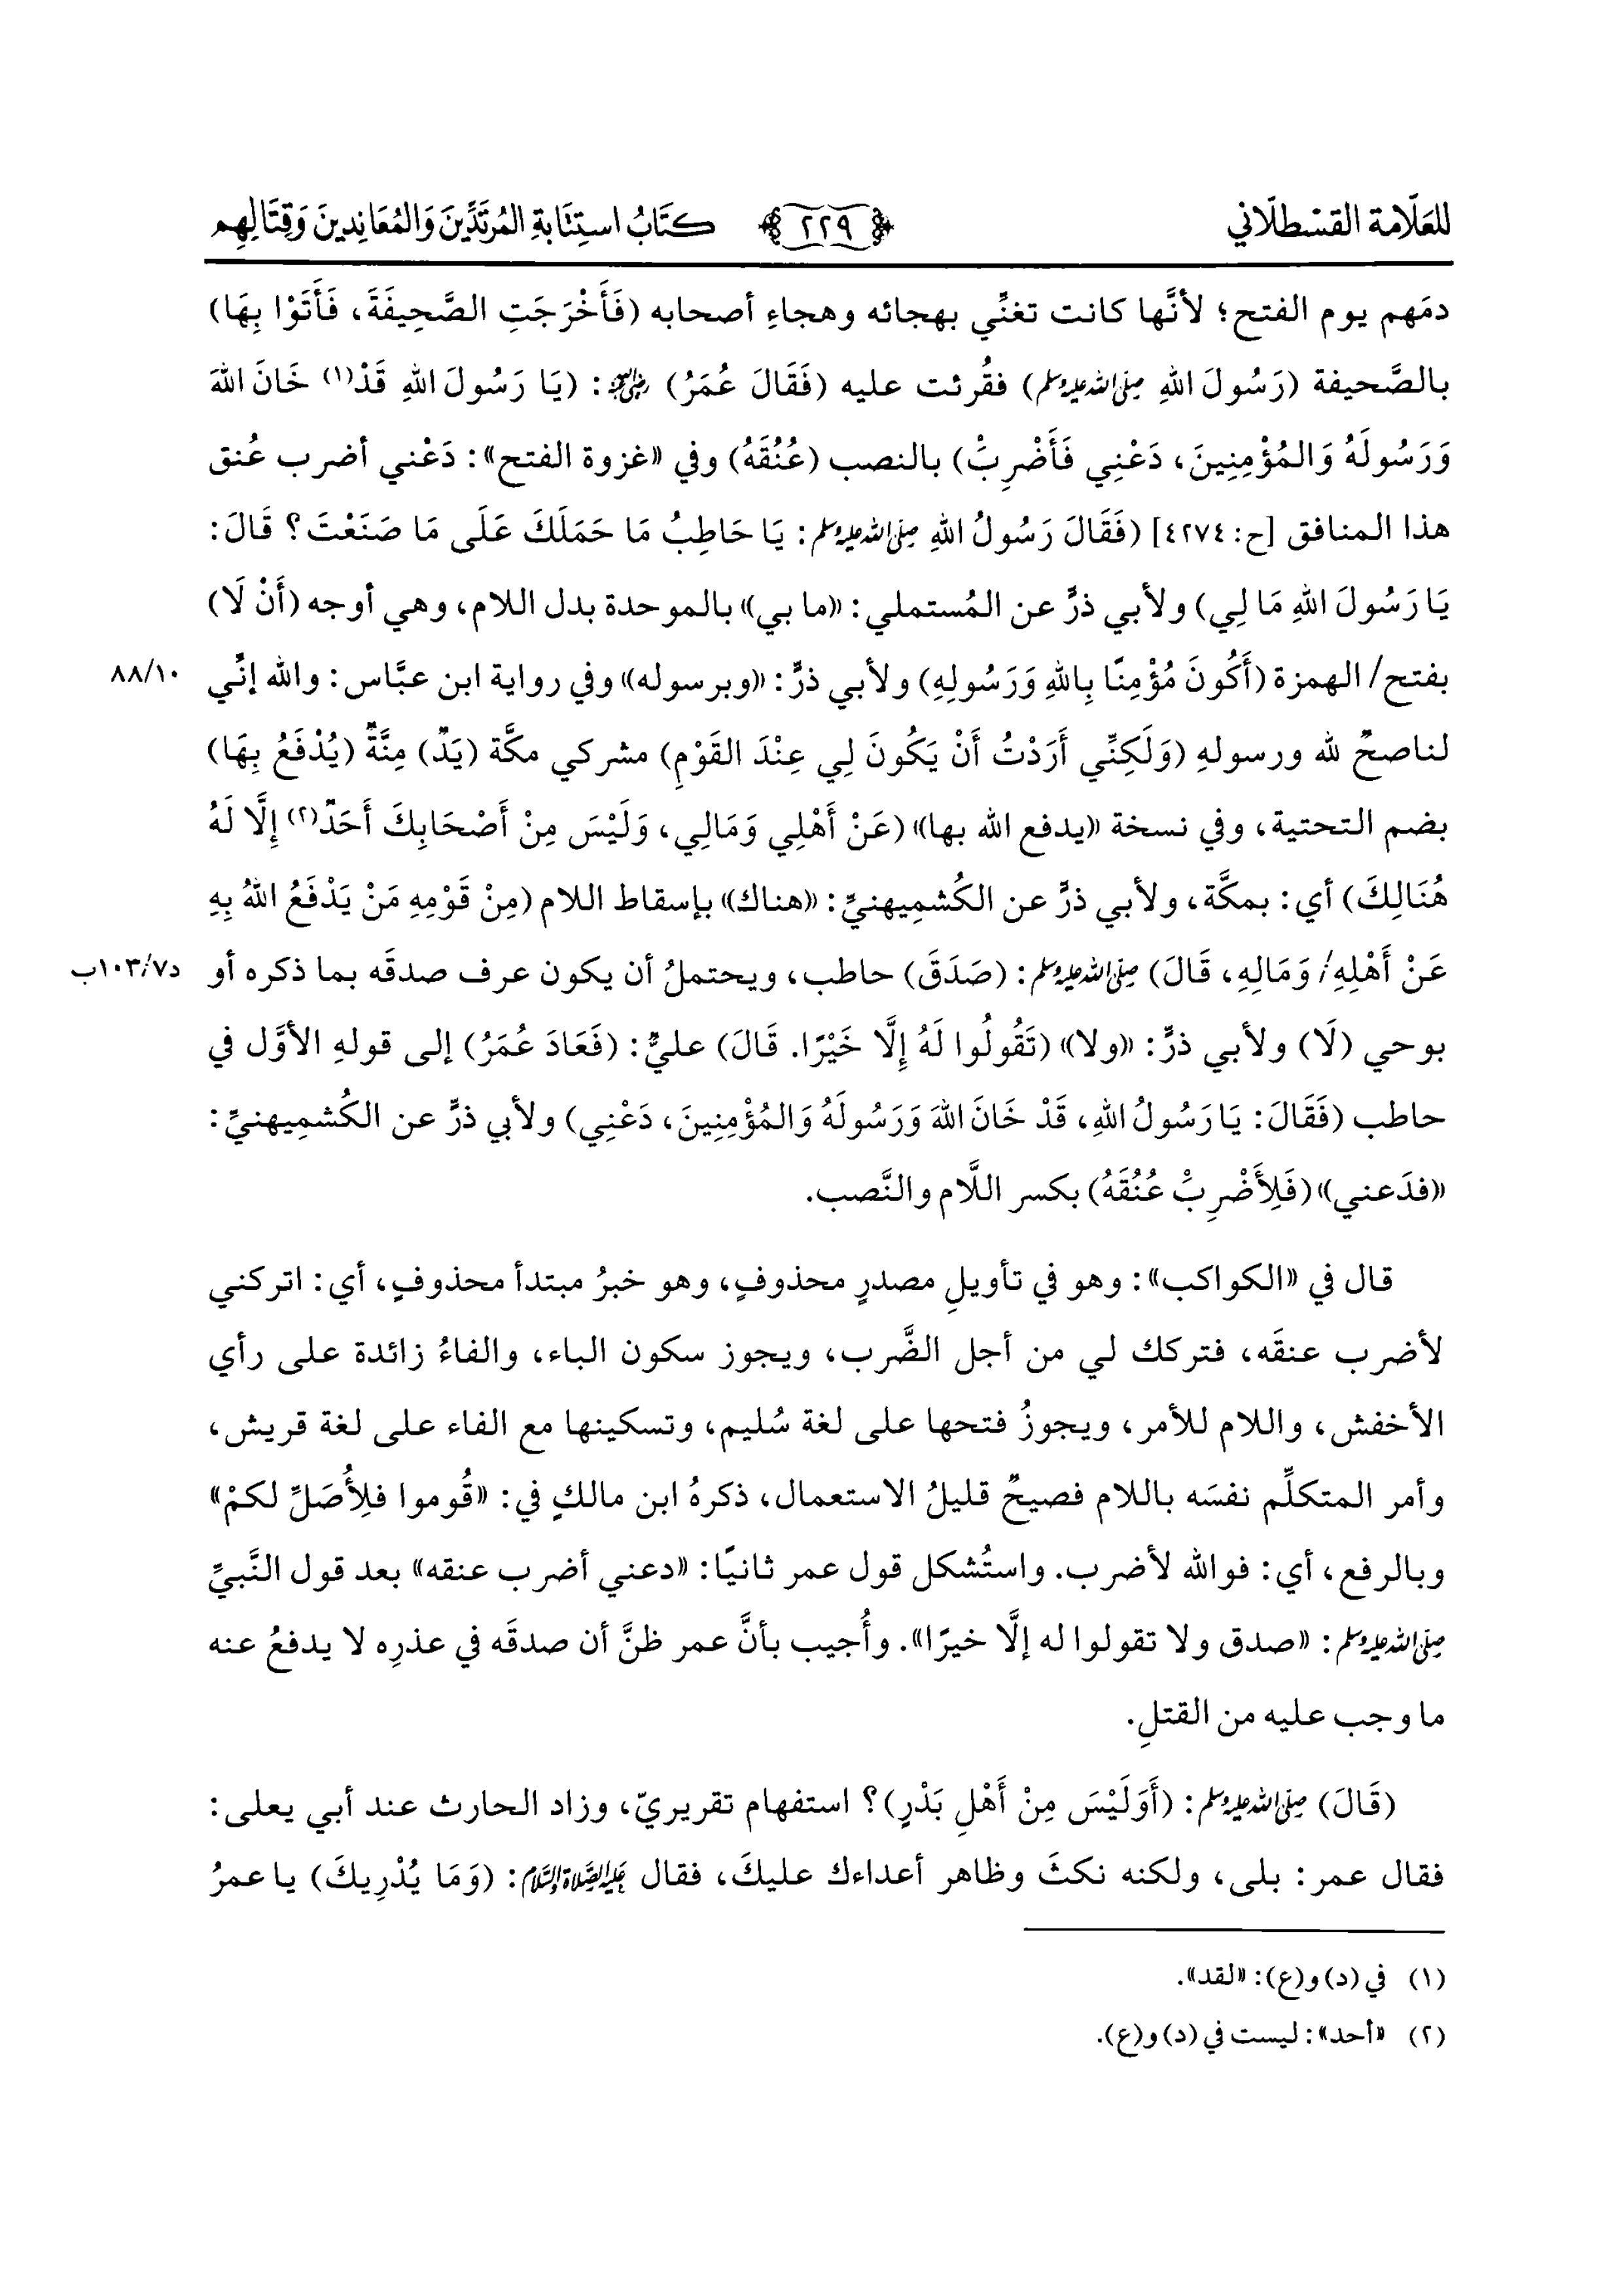 للعَلّامة القسْطلّاني ٢٢٩ كتَابُ استِتَابةِ المُرتَدِّينَ وَالمُعَانِدِينَ وَقِتَالِهِم
دمَهم يوم الفتح؛ لأنَّها كانت تغنِّي بهجائه وهجاءِ أصحابه (فَأَخْرَجَتِ الصَّحِيفَةَ، فَأَتَوْا بِهَا)
بالصَّحيفة (رَسُولَ اللهِ صلى الله عليه وسلم) فقُرئت عليه (فَقَالَ عُمَرُ) رضي الله عنه: (يَا رَسُولَ اللهِ قَدْ(١) خَانَ اللهَ
وَرَسُولَهُ وَالمُؤْمِنِينَ، دَعْنِي فَأَضْرِبَْ) بالنصب (عُنُقَهُ) وفي «غزوة الفتح»: دَعْني أضرب عُنق
هذا المنافق [ح: ٤٢٧٤] (فَقَالَ رَسُولُ اللهِ صلى الله عليه وسلم: يَا حَاطِبُ مَا حَمَلَكَ عَلَى مَا صَنَعْتَ؟ قَالَ:
يَا رَسُولَ اللهِ مَا لِي) ولأبي ذرٍّ عن المُستملي: «ما بي» بالموحدة بدل اللام، وهي أوجه (أَنْ لَا)
بفتح/ الهمزة (أَكُونَ مُؤْمِنًا بِاللهِ وَرَسُولِهِ) ولأبي ذرٍّ: «وبرسوله» وفي رواية ابن عبَّاس: والله إنِّي ٨٨/١٠
لناصحٌ لله ورسولهِ (وَلَكِنِّي أَرَدْتُ أَنْ يَكُونَ لِي عِنْدَ القَوْمِ) مشركي مكَّة (يَدٌ) مِنَّةٌ (يُدْفَعُ بِهَا)
بضم التحتية، وفي نسخة «يدفع الله بها» (عَنْ أَهْلِي وَمَالِي، وَلَيْسَ مِنْ أَصْحَابِكَ أَحَدٌ(٢) إِلَّا لَهُ
هُنَالِكَ) أي: بمكَّة، ولأبي ذرٍّ عن الكُشمِيهنيِّ: «هناك» بإسقاط اللام (مِنْ قَوْمِهِ مَنْ يَدْفَعُ اللهُ بِهِ
عَنْ أَهْلِهِ/ وَمَالِهِ، قَالَ) صلى الله عليه وسلم: (صَدَقَ) حاطب، ويحتملُ أن يكون عرف صدقَه بما ذكره أو د١٠٣/٧ب
بوحي (لَا) ولأبي ذرٍّ: «ولا» (تَقُولُوا لَهُ إِلَّا خَيْرًا. قَالَ) عليٌّ: (فَعَادَ عُمَرُ) إلى قولهِ الأوَّل في
حاطب (فَقَالَ: يَا رَسُولُ اللهِ، قَدْ خَانَ اللهَ وَرَسُولَهُ وَالمُؤْمِنِينَ، دَعْنِي) ولأبي ذرٍّ عن الكشمِيهنيِّ:
«فدَعني» (فَلِأَضْرِبَْ عُنُقَهُ) بكسر اللَّام والنَّصب.
قال في «الكواكب»: وهو في تأويلِ مصدرٍ محذوفٍ، وهو خبرُ مبتدأ محذوفٍ، أي: اتركني
لأضرب عنقَه، فتركك لي من أجل الضَّرب، ويجوز سكون الباء، والفاءُ زائدة على رأي
الأخفش، واللام للأمر، ويجوزُ فتحها على لغة سُليم، وتسكينها مع الفاء على لغة قريش،
وأمر المتكلِّم نفسَه باللام فصيحٌ قليلُ الاستعمال، ذكرهُ ابن مالكٍ في: «قُوموا فلِأُصَلِّ لكمْ»
وبالرفع، أي: فوالله لأضرب. واستُشكل قول عمر ثانيًا: «دعني أضرب عنقه» بعد قول النَّبيِّ
صلى الله عليه وسلم: «صدق ولا تقولوا له إلَّا خيرًا». وأُجيب بأنَّ عمر ظنَّ أن صدقَه في عذرِه لا يدفعُ عنه
ما وجب عليه من القتلِ.
(قَالَ) صلى الله عليه وسلم: (أَوَلَيْسَ مِنْ أَهْلِ بَدْرٍ)؟ استفهام تقريريّ، وزاد الحارث عند أبي يعلى:
فقال عمر: بلى، ولكنه نكثَ وظاهر أعداءك عليكَ، فقال عليه الصلاة والسلام: (وَمَا يُدْرِيكَ) يا عمرُ
(١) في (د) و(ع): «لقد».
(٢) «أحد»: ليست في (د) و(ع).